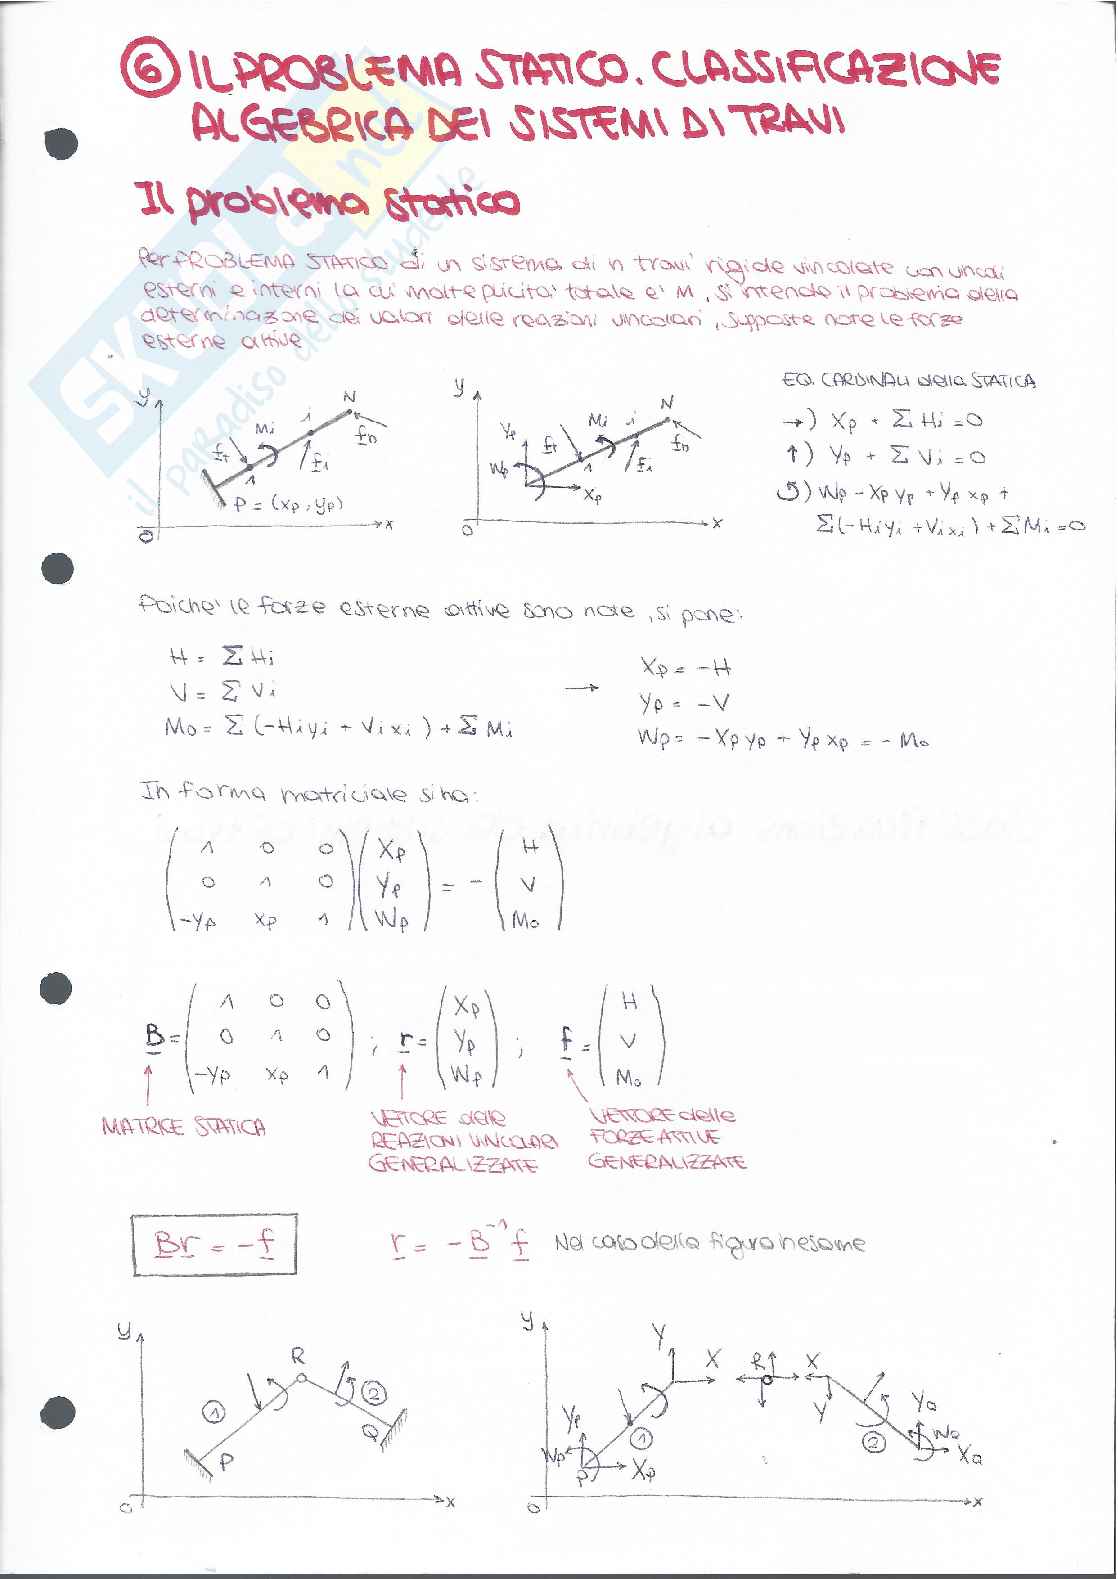 6 IL PROBLEMA STATICO. CLASSIFICAZIONE
ALGEBRICA DEI SISTEMI DI TRAVI
Il problema statico
Per PROBLEMA STATICO di un sistema di n travi rigide vincolate con vincoli
esterni e interni la cui molteplicità totale è M, si intende il problema della
determinazione dei valori delle reazioni vincolari, supposte note le forze
esterne attive
y
N
Mi
i
fn
f1
fi
1
P = (xp, yp)
O
x
y
N
Yp
Mi
i
f1
fn
Wp
1
fi
Xp
O
x
EQ. CARDINALI della STATICA
→) Xp + Σ Hi = 0
↑) Yp + Σ Vi = 0
↺) Wp - Xp yp + Yp xp +
Σ(-Hi yi + Vi xi) + Σ Mi = 0
Poiché le forze esterne attive sono note, si pone:
H = Σ Hi
V = Σ Vi
Mo = Σ (-Hi yi + Vi xi) + Σ Mi
→
Xp = -H
Yp = -V
Wp = -Xp yp + Yp xp = -Mo
In forma matriciale si ha:
1 0 0 Xp H
0 1 0 Yp = - V
-yp xp 1 Wp Mo
1 0 0 Xp H
B = 0 1 0 ; r = Yp ; f = V
-yp xp 1 Wp Mo
MATRICE STATICA
VETTORE delle
REAZIONI VINCOLARI
GENERALIZZATE
VETTORE delle
FORZE ATTIVE
GENERALIZZATE
Br = -f
r = -B⁻¹ f Nel caso della figura in esame
y
R
1
2
P
Q
O
x
y
Y
X
R
X
Y
Yp
1
Wp
P
Xp
2
YQ
WQ
XQ
O
x
SKUOLA.net
il paradiso dello studente